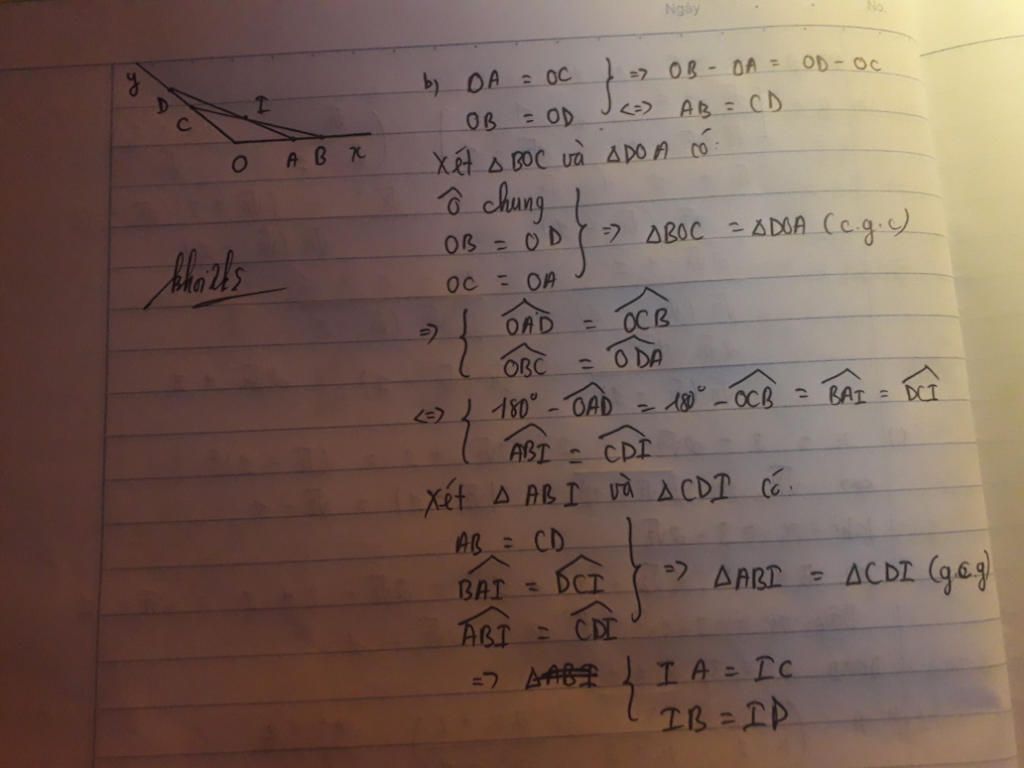 Ngày No.
y
D
C
I
O A B x
b) OA = OC } => OB - OA = OD - OC
OB = OD <=> AB = CD
Xét △BOC và △DOA có:
Ô chung
OB = OD } => △BOC = △DOA (c.g.c)
OC = OA
khoi2k5
=> { \widehat{OAD} = \widehat{OCB}
\widehat{OBC} = \widehat{ODA}
<=> { 180° - \widehat{OAD} = 180° - \widehat{OCB} = \widehat{BAI} = \widehat{DCI}
\widehat{ABI} = \widehat{CDI}
Xét △ABI và △CDI có.
AB = CD
\widehat{BAI} = \widehat{DCI} } => △ABI = △CDI (g.c.g)
\widehat{ABI} = \widehat{CDI}
=> { IA = IC
IB = ID